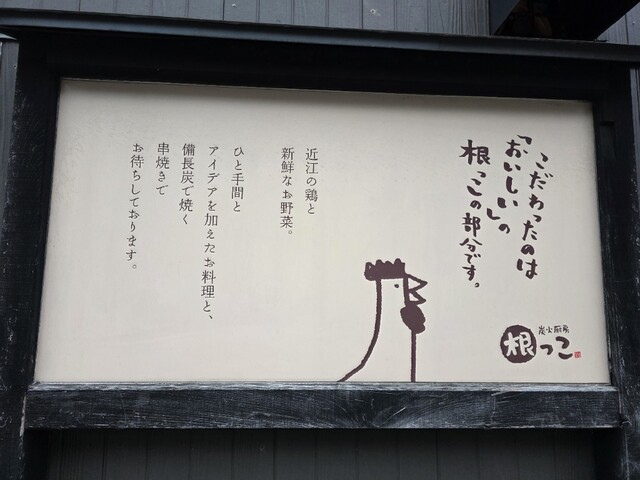 こだわったのは
「おいしい」の
根っこの部分です。
炭火厨房
根っこ
近江の鶏と
新鮮なお野菜。
ひと手間と
アイデアを加えたお料理と、
備長炭で焼く
串焼きで
お待ちしております。